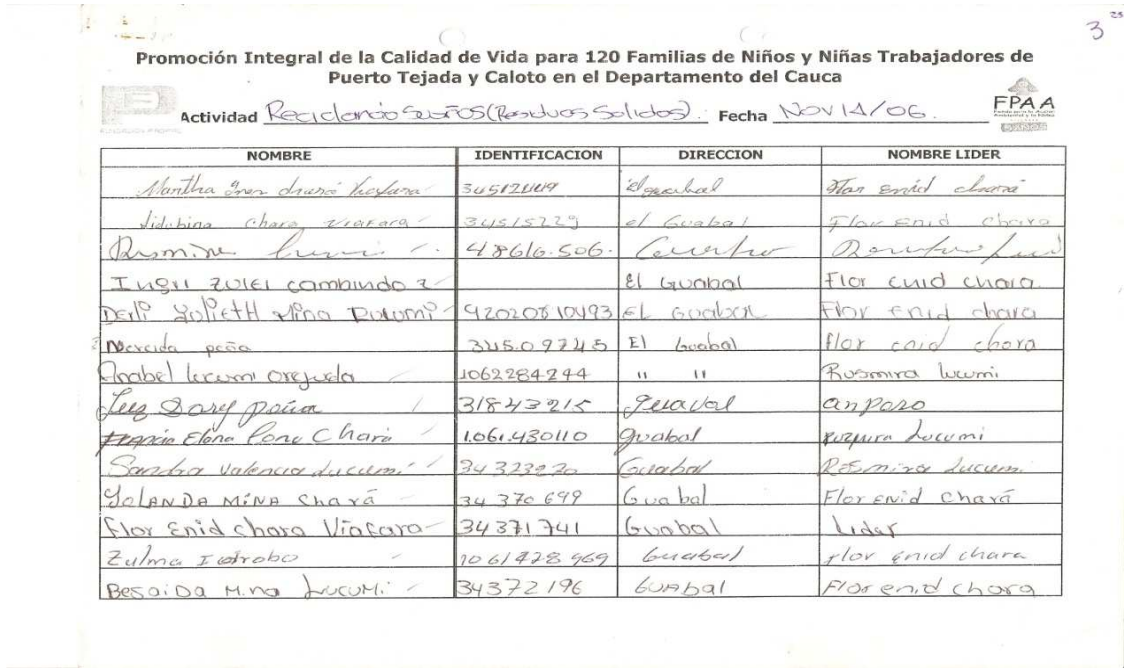 3 25
Promoción Integral de la Calidad de Vida para 120 Familias de Niños y Niñas Trabajadores de
Puerto Tejada y Caloto en el Departamento del Cauca
Actividad Reciclando Sueños (Residuos Solidos). Fecha Nov 14/06.
FPAA
NOMBRE IDENTIFICACION DIRECCION NOMBRE LIDER
Martha 34512449 El guabal Flor enid chará
chara viafara 34515229 el Guabal Flor Enid chara
48616.506.
Zulei cambindo El Guabal Flor enid chara
Derli Yulietth Mina 92020810493 EL Guabal Flor Enid chara
Mercida peña 345.09745 El Guabal flor enid chara
Anabel lucumi orejuela 1062284244 " " Rusmira lucumi
Luz Dary peña 31843215 guaval anparo
Elena Chara 1.061.430110 guabal Lucumi
Sandra Valencia Lucumi 34323220 Guabal Rosmira Lucumi
YOLANDA MINA Chará 34 370 699 Guabal Flor ENid Chará
Flor Enid chara Viafara 34371741 Guabal Lider
Zulma 1061428969 Guabal flor enid chara
Besaida Mina Lucumi 34372196 Guabal Flor enid chara